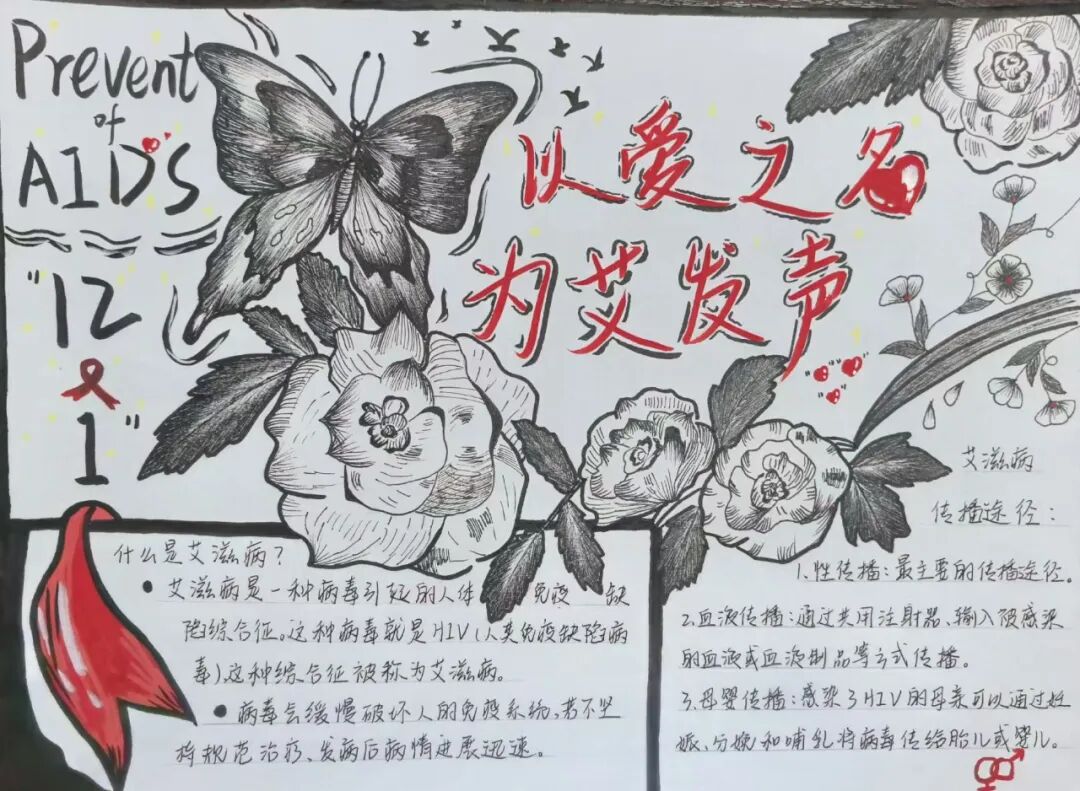 Prevent
of
AIDS
"12
1"
以爱之名
为艾发声
什么是艾滋病？
艾滋病是一种病毒引起的人体免疫缺
陷综合征。这种病毒就是HIV(人类免疫缺陷病
毒)，这种综合征被称为艾滋病。
病毒会缓慢破坏人的免疫系统，若不坚
持规范治疗、发病后病情进展迅速。
艾滋病
传播途径：
1.性传播：最主要的传播途径。
2.血液传播：通过共用注射器、输入被感染
的血液或血液制品等方式传播。
3.母婴传播：感染了HIV的母亲可以通过妊
娠、分娩和哺乳将病毒传给胎儿或婴儿。